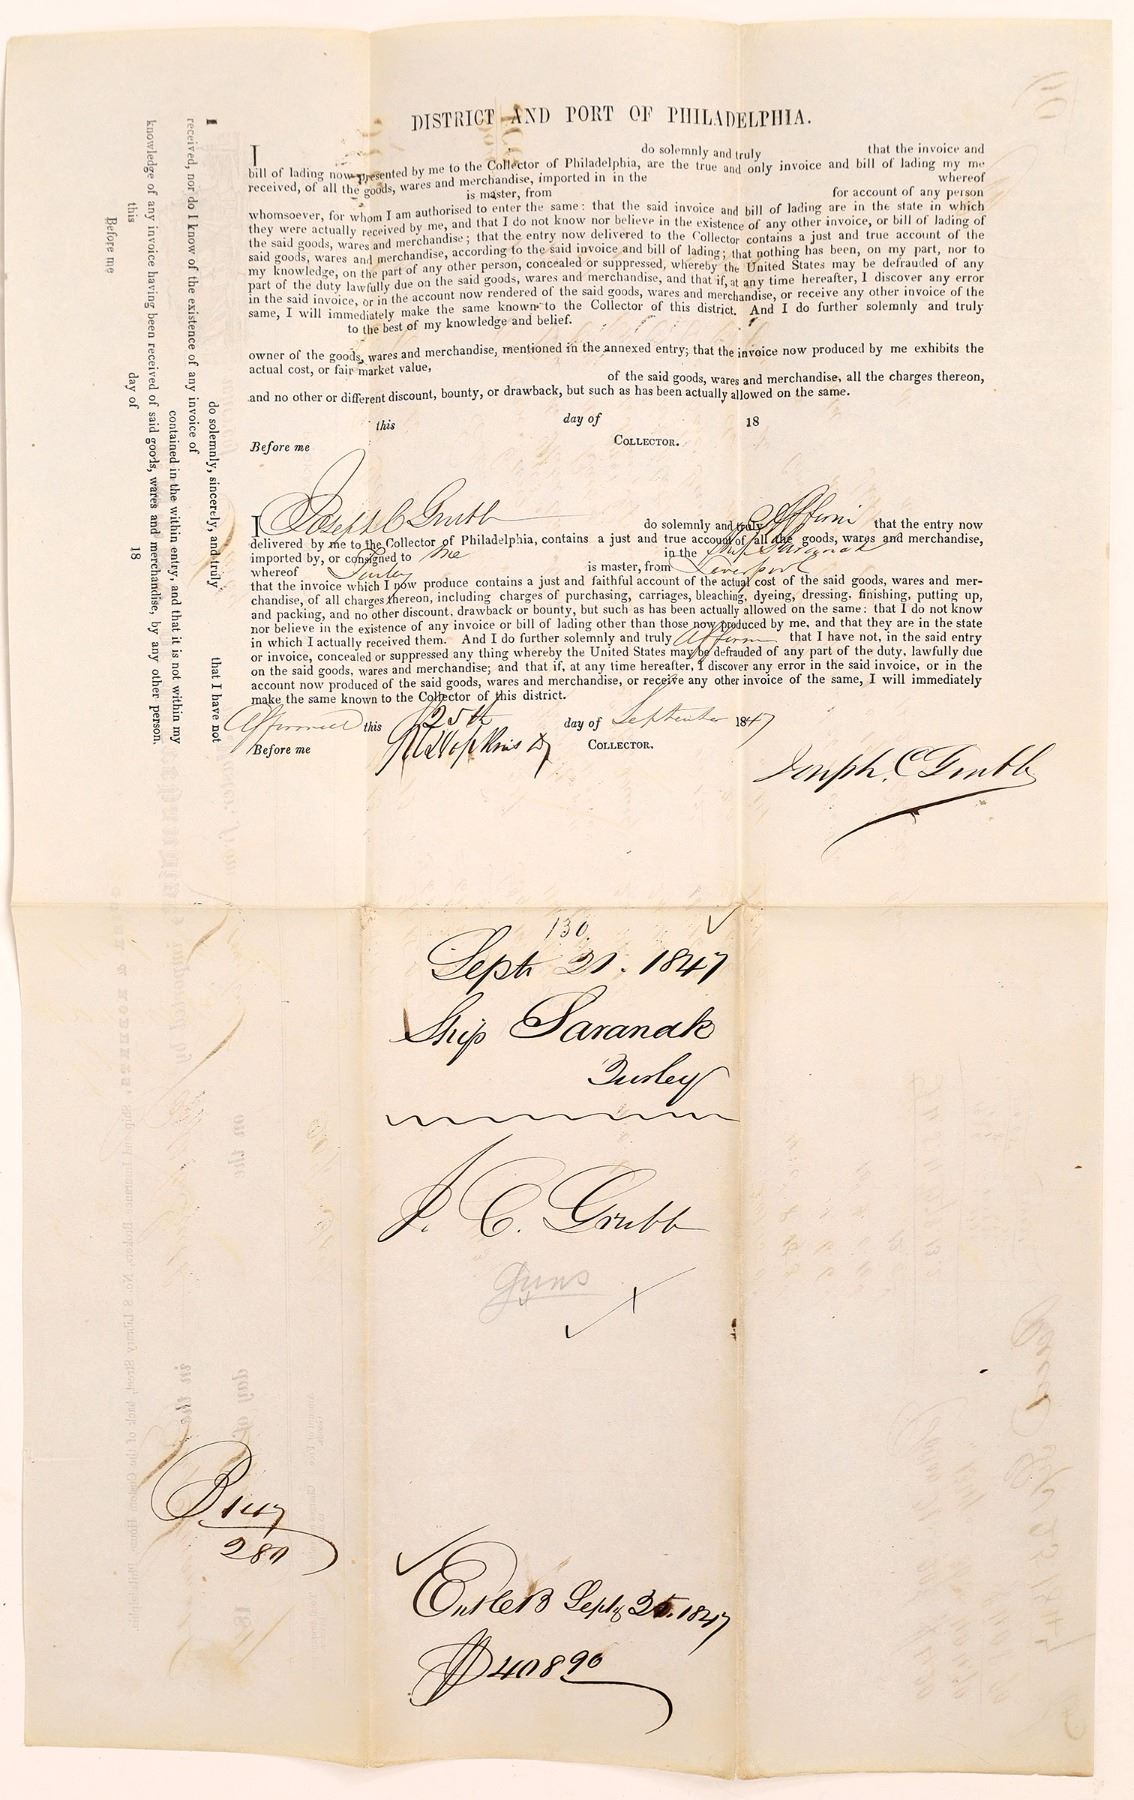 DISTRICT AND PORT OF PHILADELPHIA.
I do solemnly and truly that the invoice and
bill of lading now presented by me to the Collector of Philadelphia, are the true and only invoice and bill of lading my me
received, of all the goods, wares and merchandise, imported in in the whereof
is master, from for account of any person
whomsoever, for whom I am authorised to enter the same: that the said invoice and bill of lading are in the state in which
they were actually received by me, and that I do not know nor believe in the existence of any other invoice, or bill of lading of
the said goods, wares and merchandise; that the entry now delivered to the Collector contains a just and true account of the
said goods, wares and merchandise, according to the said invoice and bill of lading; that nothing has been, on my part, nor to
my knowledge, on the part of any other person, concealed or suppressed, whereby the United States may be defrauded of any
part of the duty lawfully due on the said goods, wares and merchandise, and that if, at any time hereafter, I discover any error
in the said invoice, or in the account now rendered of the said goods, wares and merchandise, or receive any other invoice of the
same, I will immediately make the same known to the Collector of this district. And I do further solemnly and truly
to the best of my knowledge and belief.
owner of the goods, wares and merchandise, mentioned in the annexed entry; that the invoice now produced by me exhibits the
actual cost, or fair market value,
of the said goods, wares and merchandise, all the charges thereon,
and no other or different discount, bounty, or drawback, but such as has been actually allowed on the same.
this day of 18
Before me COLLECTOR.
I Joseph C Grubb do solemnly and truly Affirm that the entry now
delivered by me to the Collector of Philadelphia, contains a just and true account of all the goods, wares and merchandise,
imported by, or consigned to me in the Ship Saranak
whereof Turley is master, from Liverpool
that the invoice which I now produce contains a just and faithful account of the actual cost of the said goods, wares and mer-
chandise, of all charges thereon, including charges of purchasing, carriages, bleaching, dyeing, dressing, finishing, putting up,
and packing, and no other discount, drawback or bounty, but such as has been actually allowed on the same: that I do not know
nor believe in the existence of any invoice or bill of lading other than those now produced by me, and that they are in the state
in which I actually received them. And I do further solemnly and truly Affirm that I have not, in the said entry
or invoice, concealed or suppressed any thing whereby the United States may be defrauded of any part of the duty, lawfully due
on the said goods, wares and merchandise; and that if, at any time hereafter, I discover any error in the said invoice, or in the
account now produced of the said goods, wares and merchandise, or receive any other invoice of the same, I will immediately
make the same known to the Collector of this district.
Affirmed this 25th day of September 1847
Before me Hopkins COLLECTOR.
Joseph C Grubb
I do solemnly, sincerely, and truly that I have not
received, nor do I know of the existence of any invoice of
contained in the within entry, and that it is not within my
knowledge of any invoice having been received of said goods, wares and merchandise, by any other person.
this day of 18
Before me
130
Sept 21. 1847
Ship Saranak
Turley
J. C. Grubb
Guns
B 147
280
Enterd Sept 25. 1847
$ 408 90